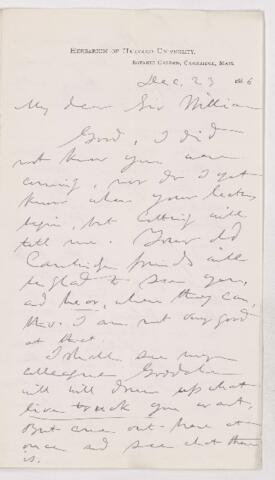 HERBARIUM OF HARVARD UNIVERSITY,
BOTANIC GARDEN, CAMBRIDGE, MASS.
Dec. 23
My dear Sir William
Good, I did
not know you were
coming, nor do I yet
know when your lectures
begin, but will
tell me. Your old
Cambridge friends will
be glad to see you,
and hear, when they can,
tho. I am not very good
at that.
I shall see my
colleague Goodale
will up what
you want,
But come out here at
once and see what there
is.